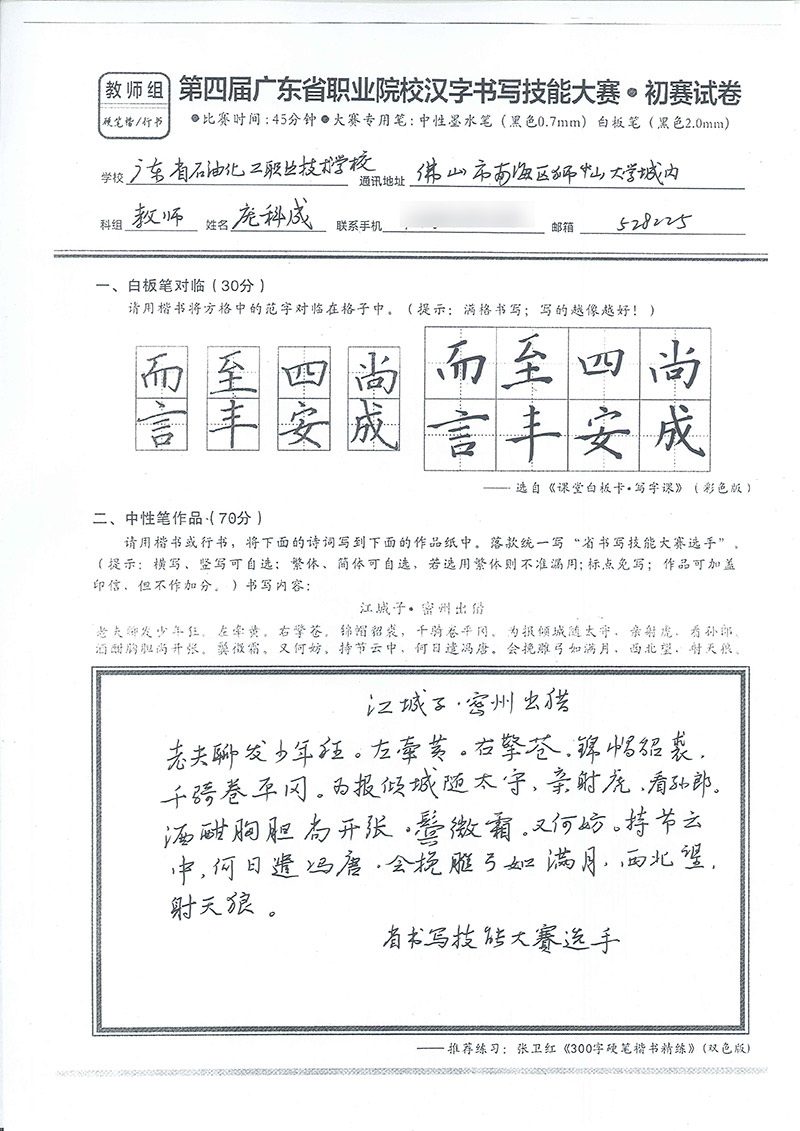 教师组
硬笔楷/行书
第四届广东省职业院校汉字书写技能大赛•初赛试卷
●比赛时间:45分钟●大赛专用笔:中性墨水笔（黑色0.7mm）白板笔（黑色2.0mm）
学校 广东省石油化工职业技术学校 通讯地址 佛山市南海区狮山大学城内
科组 教师 姓名 庞科成 联系手机 邮箱 528225
一、白板笔对临（30分）
请用楷书将方格中的范字对临在格子中。（提示：满格书写；写的越像越好！）
而 至 四 尚 而 至 四 尚
言 丰 安 成 言 丰 安 成
——选自《课堂白板卡•写字课》（彩色版）
二、中性笔作品·(70分）
请用楷书或行书，将下面的诗词写到下面的作品纸中。落款统一写“省书写技能大赛选手”。
（提示：横写、竖写可自选；繁体、简体可自选，若选用繁体则不准漏用;标点免写；作品可加盖
印信，但不作加分。）书写内容：
江城子•密州出猎
老夫聊发少年狂。左牵黄。右擎苍。锦帽貂裘，千骑卷平冈。为报倾城随太守，亲射虎，看孙郎。
酒酣胸胆尚开张。鬓微霜。又何妨。持节云中，何日遣冯唐。会挽雕弓如满月，西北望，射天狼。
江城子·密州出猎
老夫聊发少年狂。左牵黄。右擎苍。锦帽貂裘，
千骑卷平冈。为报倾城随太守，亲射虎，看孙郎。
酒酣胸胆尚开张。鬓微霜。又何妨。持节云
中，何日遣冯唐。会挽雕弓如满月，西北望，
射天狼。
省书写技能大赛选手
——推荐练习：张卫红《300字硬笔楷书精练》(双色版)